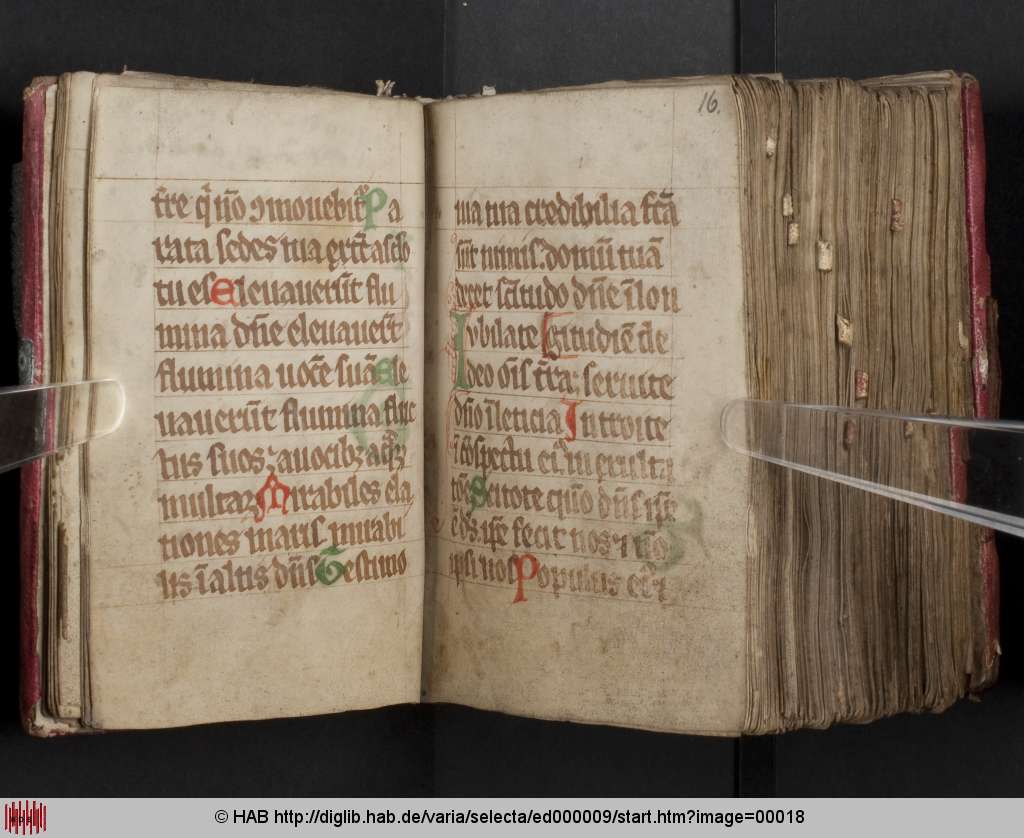 t̄re q̊ nō ↄmouebit᷑ Pa
rata sedes tua ex tc̄ a sc̄lo
tu es Eleuauerūt flu
mina dn̄e eleuauer̄t
flumina uocē suā Ele
uauerūt flumina fluc
tus suos ⁊ a uocibꝫ aq̈rꝫ
multarꝫ Mirabiles ela
tiones maris mirabi
lis ī altis dn̄s Testimo
16.
nia tua credibilia fc̄a
sūt nimis. domū tuā
decet sc̄itudo dn̄e ī lon
Iubilate gitudiē die
deo ōīs t̄ra: seruite
dn̄o ī leticia Introite
ī ↄspectu ei᷒ in exulta
tōe Scitote qm̄ dn̄s ip̄e
ē ds̄. ip̄e fecit nos ⁊ nō
ipsi nos Populus ei᷒ ⁊
© HAB http://diglib.hab.de/varia/selecta/ed000009/start.htm?image=00018